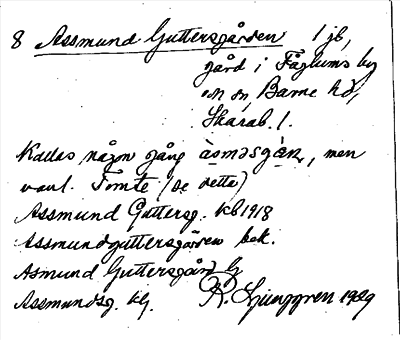 8 Assmund Guttersgården 1 jb,
gård i Fåglums by
o. sn, Barne hd,
Skarab. l.
Kallas någon gång àsməsgàɳ, men
vanl. Tomte (se detta)
Assmund Guttersg. kb 1918
Assmundguttersgården bek.
Asmund Guttersgård G
Assmundsg. kG. R. Ljunggren 1929